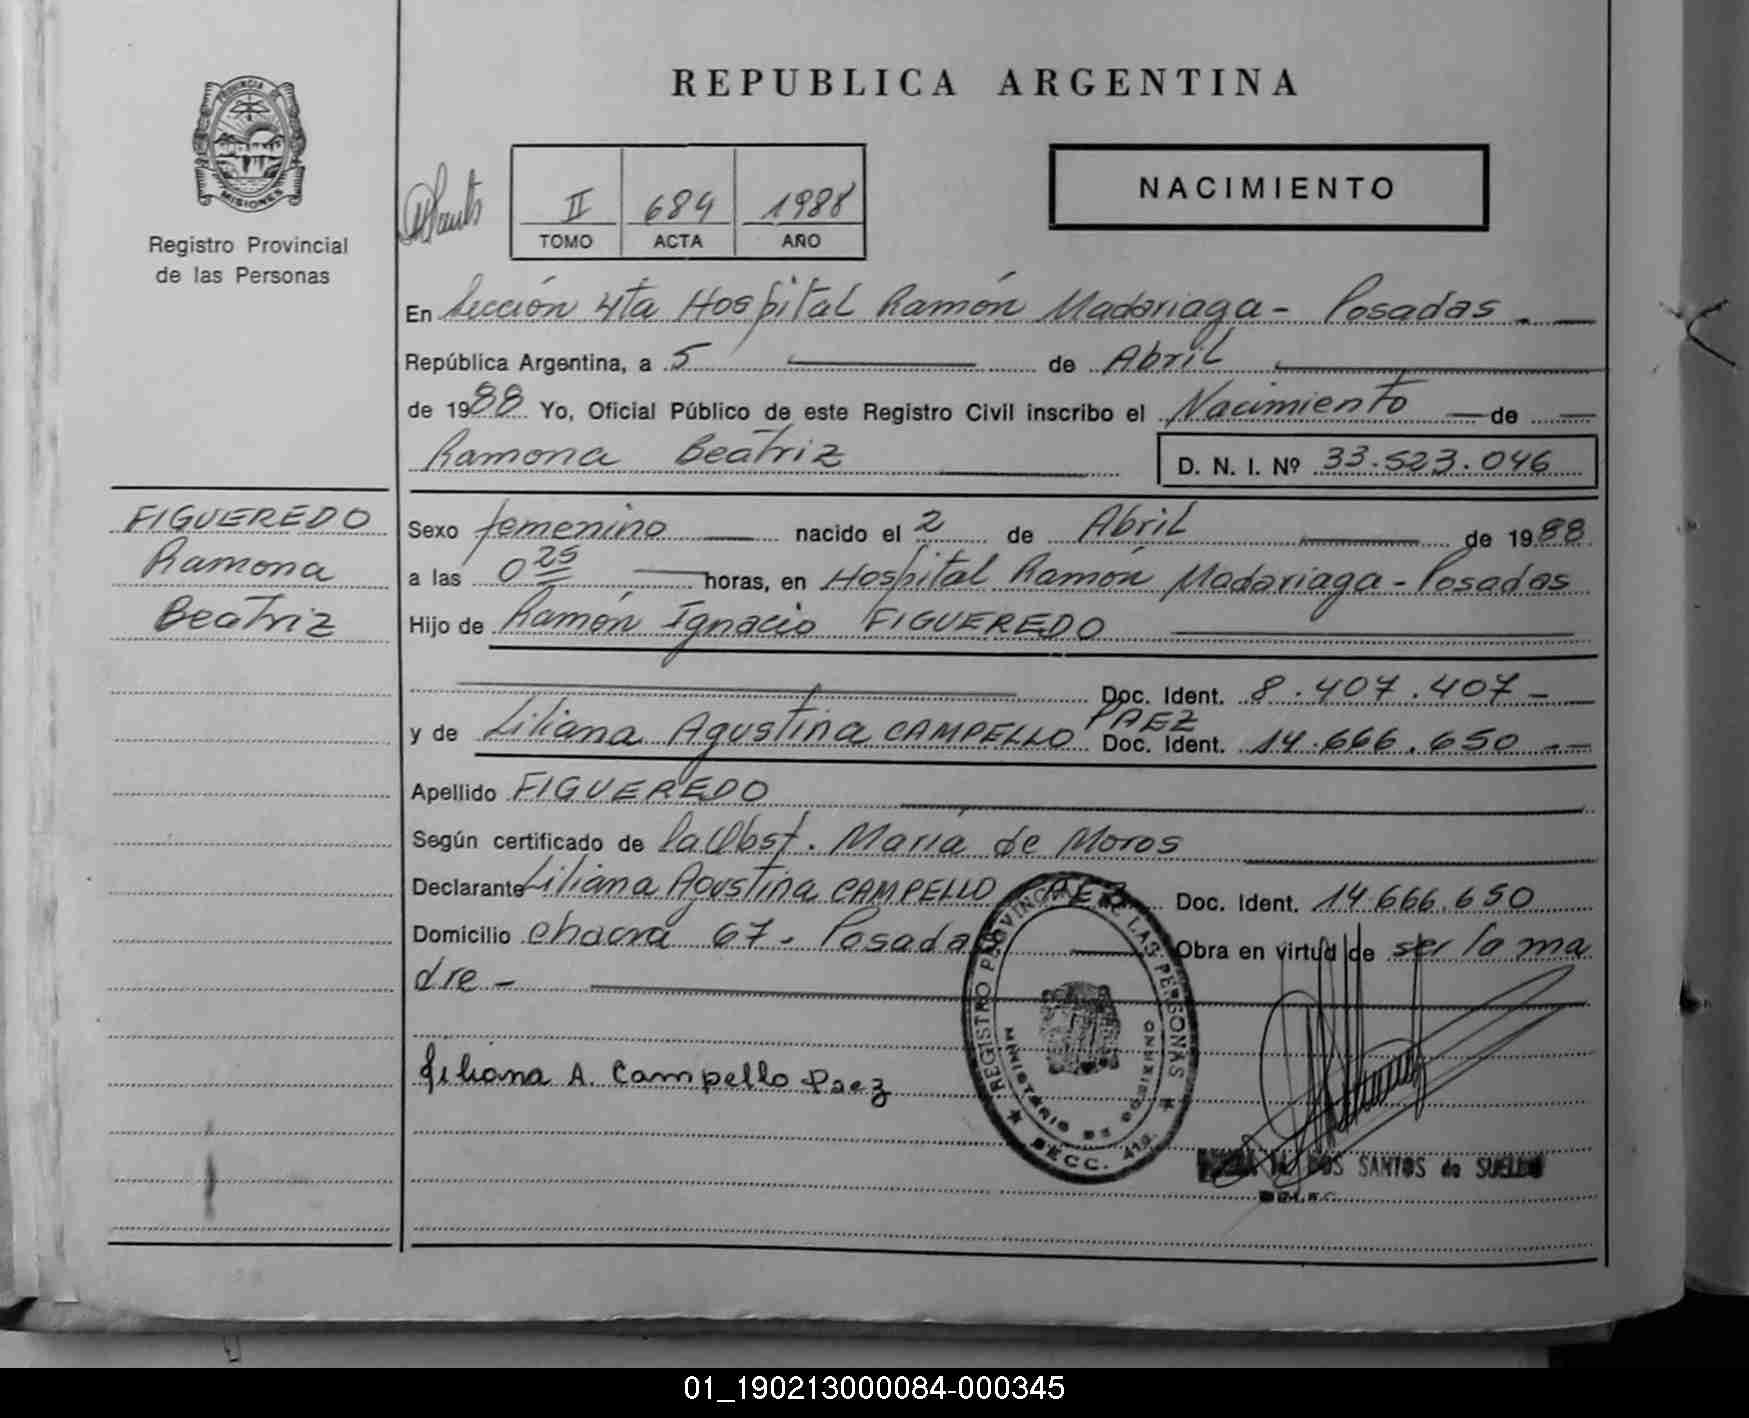 REPUBLICA ARGENTINA
PROVINCIA DE
MISIONES
Registro Provincial
de las Personas
II 684 1988
TOMO ACTA AÑO
NACIMIENTO
En Sección 4ta Hospital Ramón Madariaga - Posadas. —
República Argentina, a 5 — de Abril —
de 1988 Yo, Oficial Público de este Registro Civil inscribo el Nacimiento — de —
Ramona Beatriz —
D. N. I. Nº 33.523.046
FIGUEREDO
Ramona
Beatriz
Sexo femenino — nacido el 2 de Abril — de 1988
a las 0 25 — horas, en Hospital Ramón Madariaga - Posadas
Hijo de Ramón Ignacio FIGUEREDO —
— Doc. Ident. 8.407.407 -
y de Liliana Agustina CAMPELLO PAEZ Doc. Ident. 14.666.650 --
Apellido FIGUEREDO —
Según certificado de la Obst. María de Moros —
Declarante Liliana Agustina CAMPELLO PAEZ Doc. Ident. 14.666.650
Domicilio chacra 67 - Posadas — Obra en virtud de ser la ma
dre - —
Liliana A. Campello Paez
REGISTRO PROVINCIAL DE LAS PERSONAS
MINISTERIO DE GOBIERNO
SECC. 4ta.
DOS SANTOS de SUELDO
01_190213000084-000345